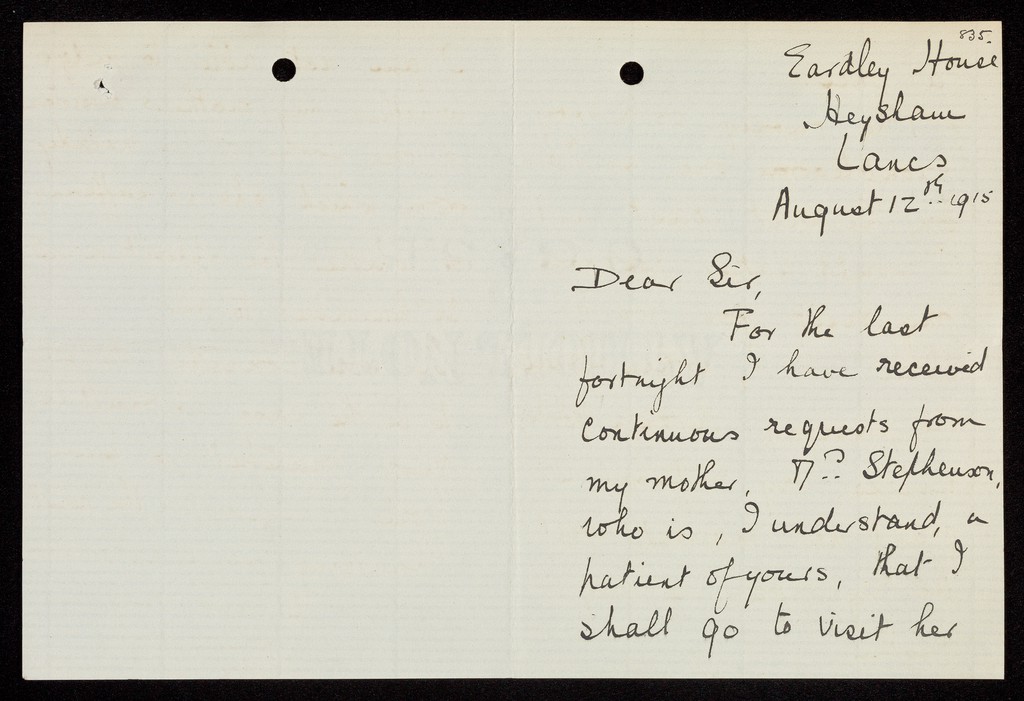 835.
Eardley House
Heysham
Lancs
August 12th. 1915
Dear Sir,
For the last
fortnight I have received
continuous requests from
my mother, Mrs. Stephenson,
who is, I understand, a
patient of yours, that I
shall go to visit her